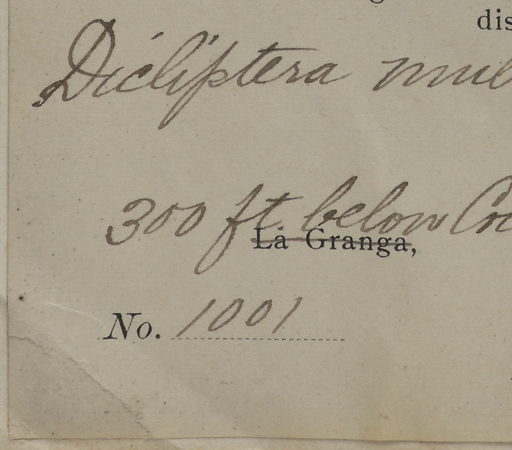 dis
Dicliptera mul
300 ft. below Co
La Granga,
No. 1001